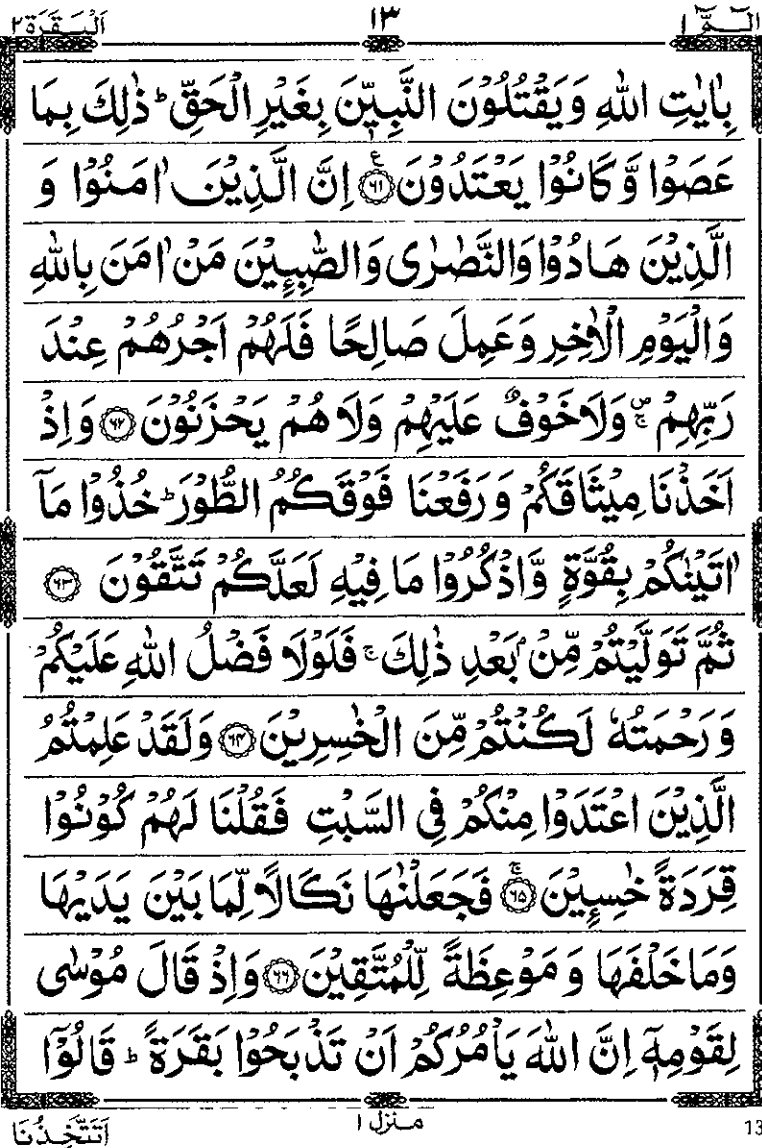 الٓمّٓ ١ ١٣ اَلْبَقَرَة ٢
بِاٰيٰتِ اللّٰهِ وَيَقْتُلُوْنَ النَّبِيّٖنَ بِغَيْرِ الْحَقِّ ؕ ذٰلِكَ بِمَا
عَصَوْا وَّكَانُوْا يَعْتَدُوْنَ ﴿٦١﴾ ع اِنَّ الَّذِيْنَ اٰمَنُوْا وَ
الَّذِيْنَ هَادُوْا وَالنَّصٰرٰى وَالصّٰبِـِٕيْنَ مَنْ اٰمَنَ بِاللّٰهِ
وَالْيَوْمِ الْاٰخِرِ وَعَمِلَ صَالِحًا فَلَهُمْ اَجْرُهُمْ عِنْدَ
رَبِّهِمْ ۖۚ وَلَا خَوْفٌ عَلَيْهِمْ وَلَا هُمْ يَحْزَنُوْنَ ﴿٦٢﴾ وَاِذْ
اَخَذْنَا مِيْثَاقَكُمْ وَرَفَعْنَا فَوْقَكُمُ الطُّوْرَ ؕ خُذُوْا مَاۤ
اٰتَيْنٰكُمْ بِقُوَّةٍ وَّاذْكُرُوْا مَا فِيْهِ لَعَلَّكُمْ تَتَّقُوْنَ ﴿٦٣﴾
ثُمَّ تَوَلَّيْتُمْ مِّنْۢ بَعْدِ ذٰلِكَ ۚ فَلَوْلَا فَضْلُ اللّٰهِ عَلَيْكُمْ
وَرَحْمَتُهٗ لَكُنْتُمْ مِّنَ الْخٰسِرِيْنَ ﴿٦٤﴾ وَلَقَدْ عَلِمْتُمُ
الَّذِيْنَ اعْتَدَوْا مِنْكُمْ فِى السَّبْتِ فَقُلْنَا لَهُمْ كُوْنُوْا
قِرَدَةً خٰسِـِٕيْنَ ﴿٦٥﴾ۚ فَجَعَلْنٰهَا نَكَالًا لِّمَا بَيْنَ يَدَيْهَا
وَمَا خَلْفَهَا وَمَوْعِظَةً لِّلْمُتَّقِيْنَ ﴿٦٦﴾ وَاِذْ قَالَ مُوْسٰى
لِقَوْمِهٖۤ اِنَّ اللّٰهَ يَاْمُرُكُمْ اَنْ تَذْبَحُوْا بَقَرَةً ؕ قَالُوْۤا
13 منزل ١ اَتَتَّخِذُنَا